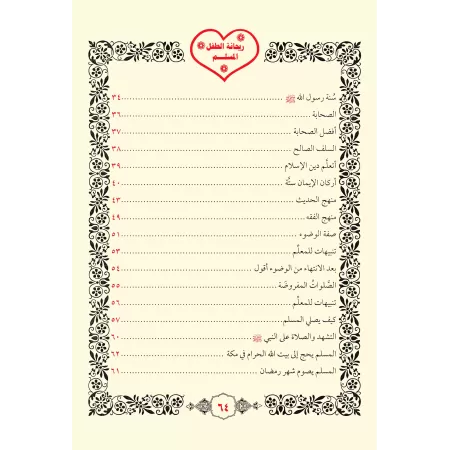 ريحانة الطفل
المسلم
سُنة رسول الله ﷺ ............ ٣٤
الصحابة ............ ٣٦
أفضل الصحابة ............ ٣٧
السلف الصالح ............ ٣٨
أتعلَّم دين الإسلام ............ ٣٩
أركان الإيمان ستَّة ............ ٤٠
منهج الحديث ............ ٤٣
منهج الفقه ............ ٤٩
صفة الوضوء ............ ٥١
تنبيهات للمعلِّم ............ ٥٣
بعد الانتهاء من الوضوء أقول ............ ٥٤
الصَّلواتُ المفروضَة ............ ٥٥
تنبيهات للمعلِّم ............ ٥٦
كيف يصلي المسلم ............ ٥٧
التشهد والصلاة على النبي ﷺ ............ ٦٠
المسلم يحج إلى بيت الله الحرام في مكة ............ ٦٢
المسلم يصوم شهر رمضان ............ ٦١
٦٤